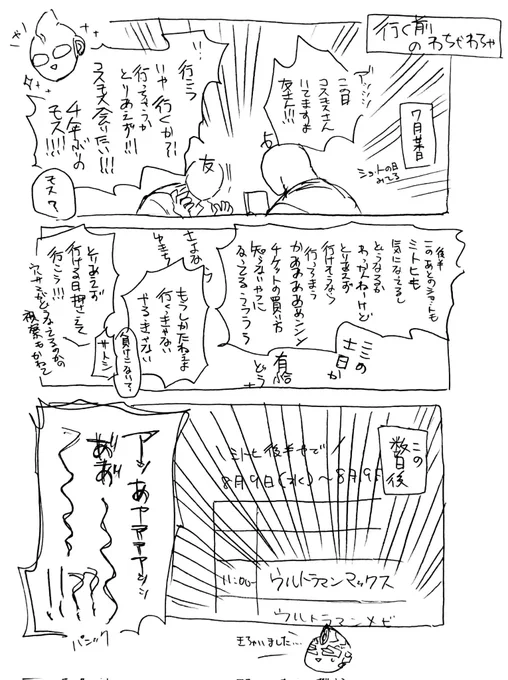 行く前
のわちゃわちゃ
7月某日
ショーの日
みてる
アッッッ
二日目
コスモスさん
いてますよ
友さん!!!
友
!!
行こう
いや行くか?!
行っちゃうか
とりあえず!!!
コスモス会いたい!!!
千年ぶりの
モス!!!!
モス?
後半
このあとのショーも
ミトヒも
気になってるし
どうなるか
わっかんねーけど
とりあえず
行けそうなら
行っちまう
かああああああンンン
チケットの買い方
知らないやつに
なってる…うううう
三の
土日か
有給
どう
さよな
ゆきち
もうしかたねぇよ
行くっきゃない
やるっきゃない
負けらんないって?
サトシ
とりあえず
行ける日押さえて
行こう!!!
視察もかねて
この
数日後
\ミトヒ後半セで/
8月9日(水)~8月9日
11:00~
ウルトラマンマックス
ウルトラマンメビ
アッ
あャアアアアッッ
ああ゛
パニック
きちゃいました…